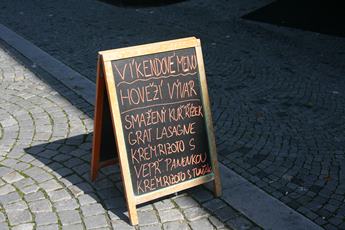 VÍKENDOVÉ MENU
HOVĚZÍ VÝVAR
SMAŽENÝ KUŘ. ŘÍZEK
GRAT. LASAGNE
KRÉM. RIZOTO S
VEPŘ. PANENKOU
KRÉM. RIZOTO S